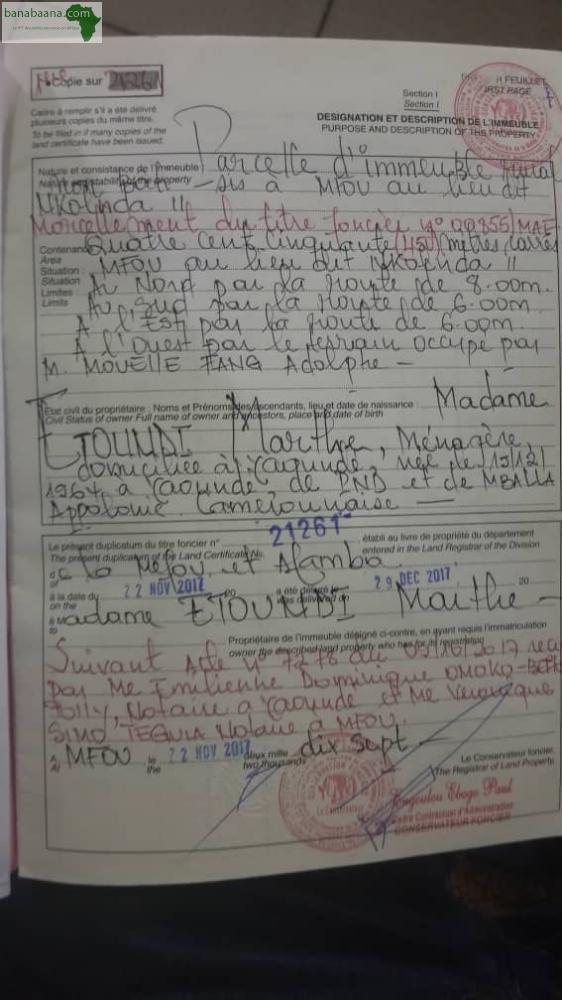 banabaana.com
Copie sur 21261
Section I
Section I
FEUILLET
FIRST PAGE
Cadre à remplir s'il a été délivré
plusieurs copies du même titre.
To be filed in if many copies of the
land certificate have been issued.
DESIGNATION ET DESCRIPTION DE L'IMMEUBLE
PURPOSE AND DESCRIPTION OF THE PROPERTY
Nature et consistance de l'immeuble
Parcelle d'immeuble rural
Non Bâti - sis à Mfou au lieu dit
Nkolnda II
Morcellement du titre foncier n° /MAE
Contenance
Area
Quatre cent cinquante (450) mètres carrés
Situation :
Situation
MFOU au lieu dit Nkolnda II
Limites :
Limits
Au Nord par la route de 8.00m.
Au Sud par la route de 6.00m
A l'Est par la route de 6.00m.
A l'Ouest par le terrain occupé par
M. MOVELLE FANG Adolphe -
Etat civil du propriétaire : Noms et Prénoms des ascendants, lieu et date de naissance :
Civil Status of owner Full name of owner and ancestors, place and date of birth
Madame
ETOUNDI Marthe, Ménagère,
domiciliée à Yaoundé, née le
1964 à Yaoundé, de PND et de MBALLA
Appolonie. Camerounaise -
Le présent duplicatum du titre foncier n°
21261
établi au livre de propriété du département
The present duplicatum of the Land Certificate No.
entered in the Land Registrar of the Division
de la Mefou et Afamba
à la date du
on the
22 NOV 2017
20
a été délivré le
was delivered on
29 DEC 2017
20
à
to
Madame ETOUNDI Marthe -
Propriétaire de l'immeuble désigné ci-contre, en ayant requis l'immatriculation
owner the described land property who has for its registration
Suivant Acte n° 7278 du 2017 reçu
par Me Emilienne Dominique
Notaire à Yaoundé et Me Véronique
SIMO TEGUIA Notaire à MFOU.
A
At
MFOU
le
the
22 NOV 2017
deux mille
two thousands
dix sept -
Le Conservateur foncier,
The Registrar of Land Property,
Ebogo Paul
CONSERVATEUR FONCIER